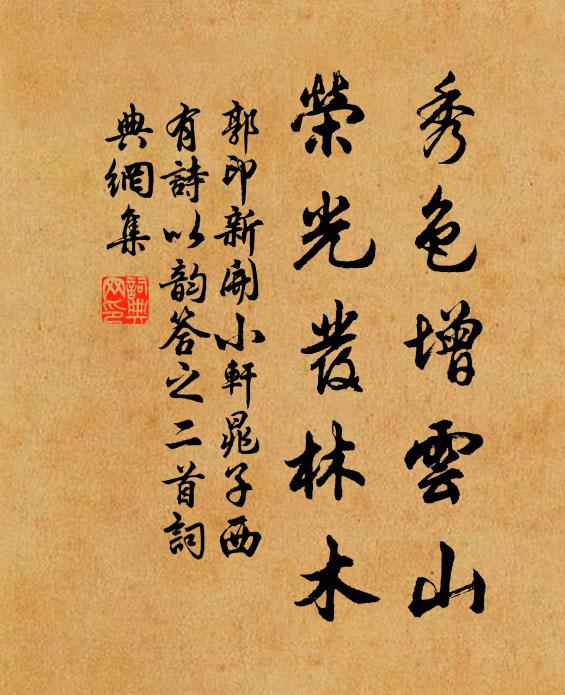 秀色增雲山
榮光發林木
郭印新開小軒晁子西
有詩以韵答之二首詞
典網集
詞典
网印